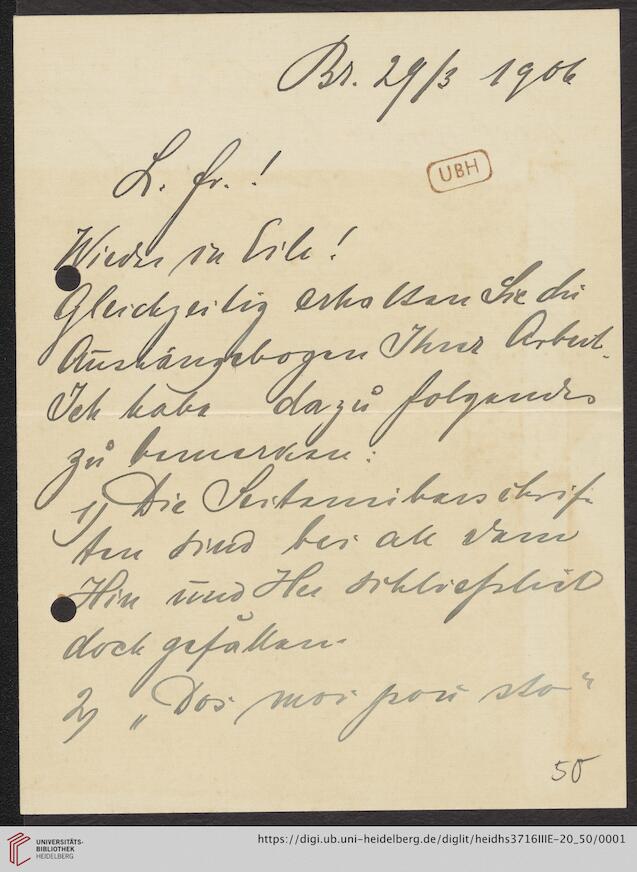 Br. 29/3 1906
L. Fr.!
UBH
Wieder in Eile!
Gleichzeitig erhalten Sie die
Aushängebogen Ihrer Arbeit.
Ich habe dazu folgendes
zu bemerken:
1) Die Seitenüberschrif-
ten sind bei all dem
Hin und Her schließlich
doch gefallen.
2) „Dos moi pou sto“
50
UNIVERSITÄTS-
BIBLIOTHEK
HEIDELBERG
https://digi.ub.uni-heidelberg.de/diglit/heidhs3716IIIE-20_50/0001